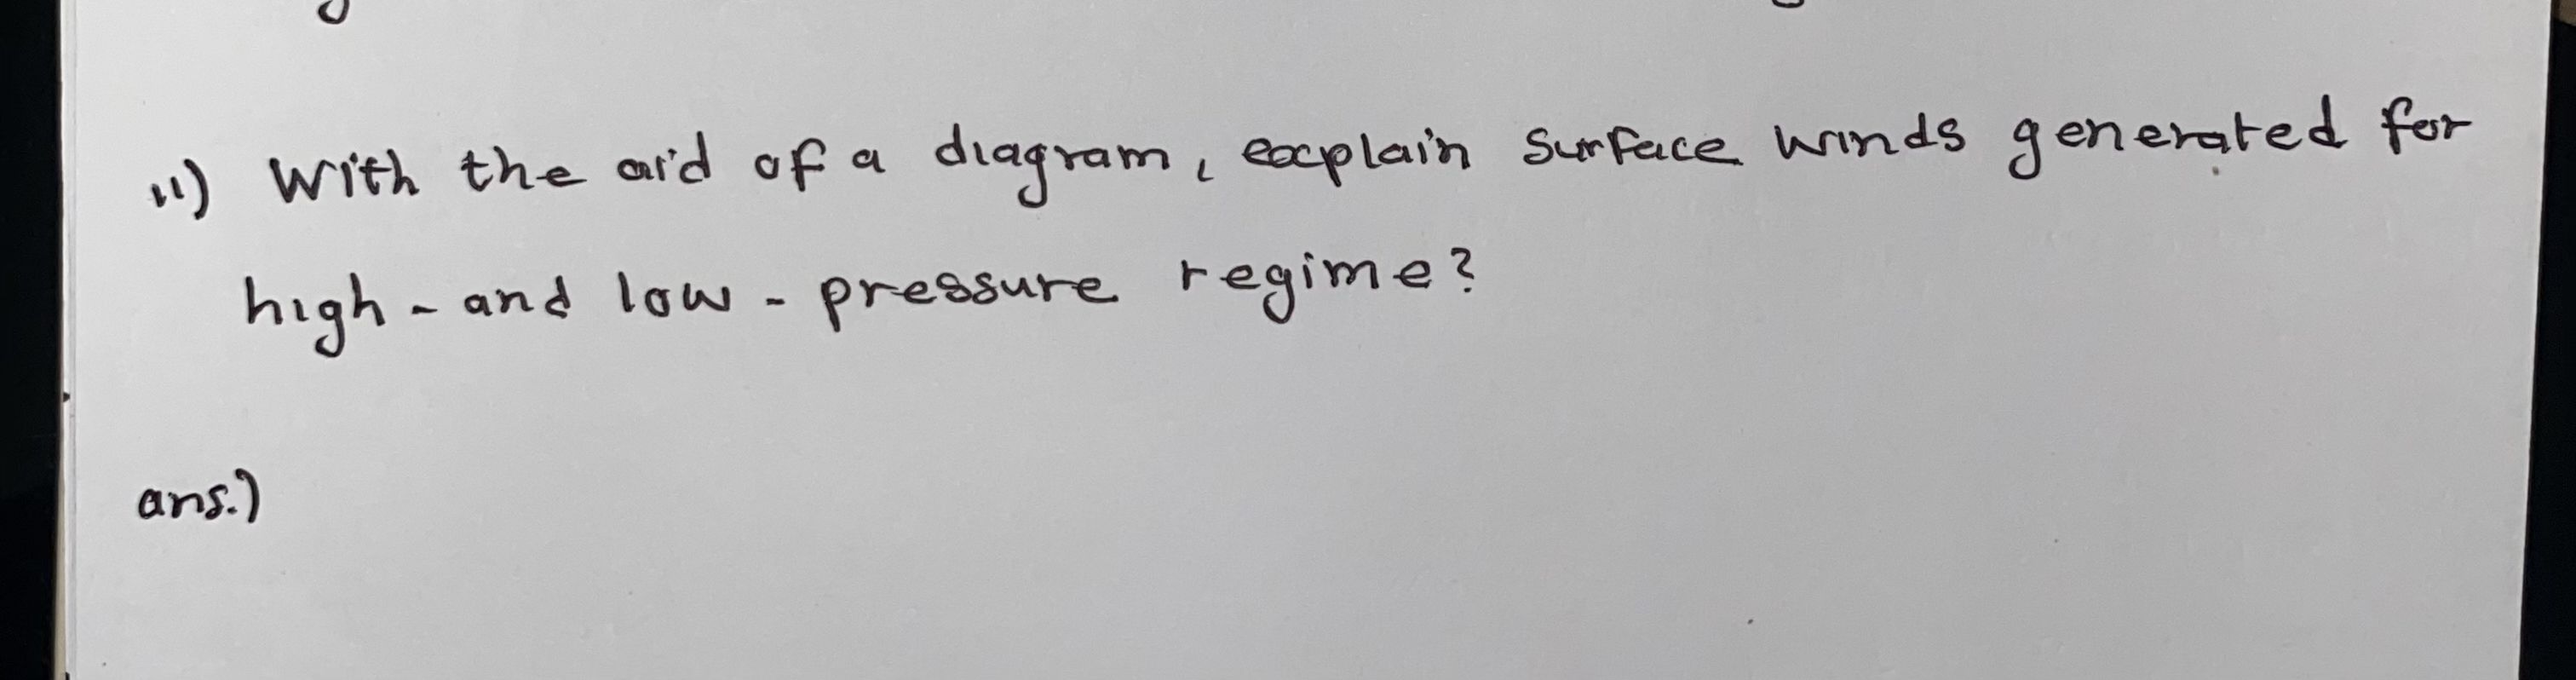 ii) With the aid of a diagram, explain surface winds generated for
high - and low - pressure regime?
ans.)